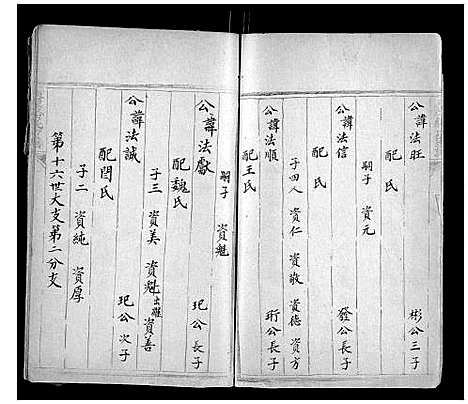 公諱法旺 彬公三子
配 氏
嗣子 資元
公諱法信 發公長子
配 氏
子四人 資仁 資敬 資德 資方
公諱法順 珩公長子
配王氏
嗣子 資魁
公諱法獻 玘公長子
配魏氏
子三 資美 資魁出繼 資善
公諱法誠 玘公次子
配閆氏
子二 資純 資厚
第十六世大支第二分支